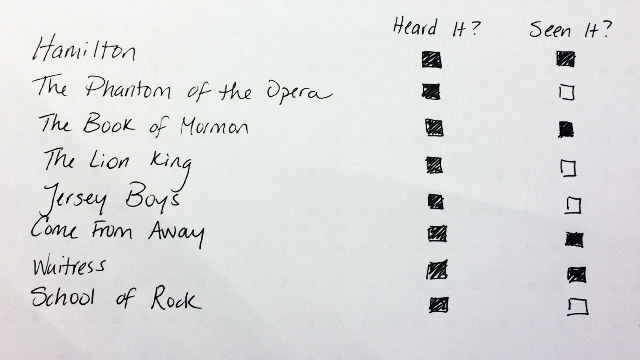 Heard It? Seen It?
Hamilton
The Phantom of the Opera
The Book of Mormon
The Lion King
Jersey Boys
Come From Away
Waitress
School of Rock